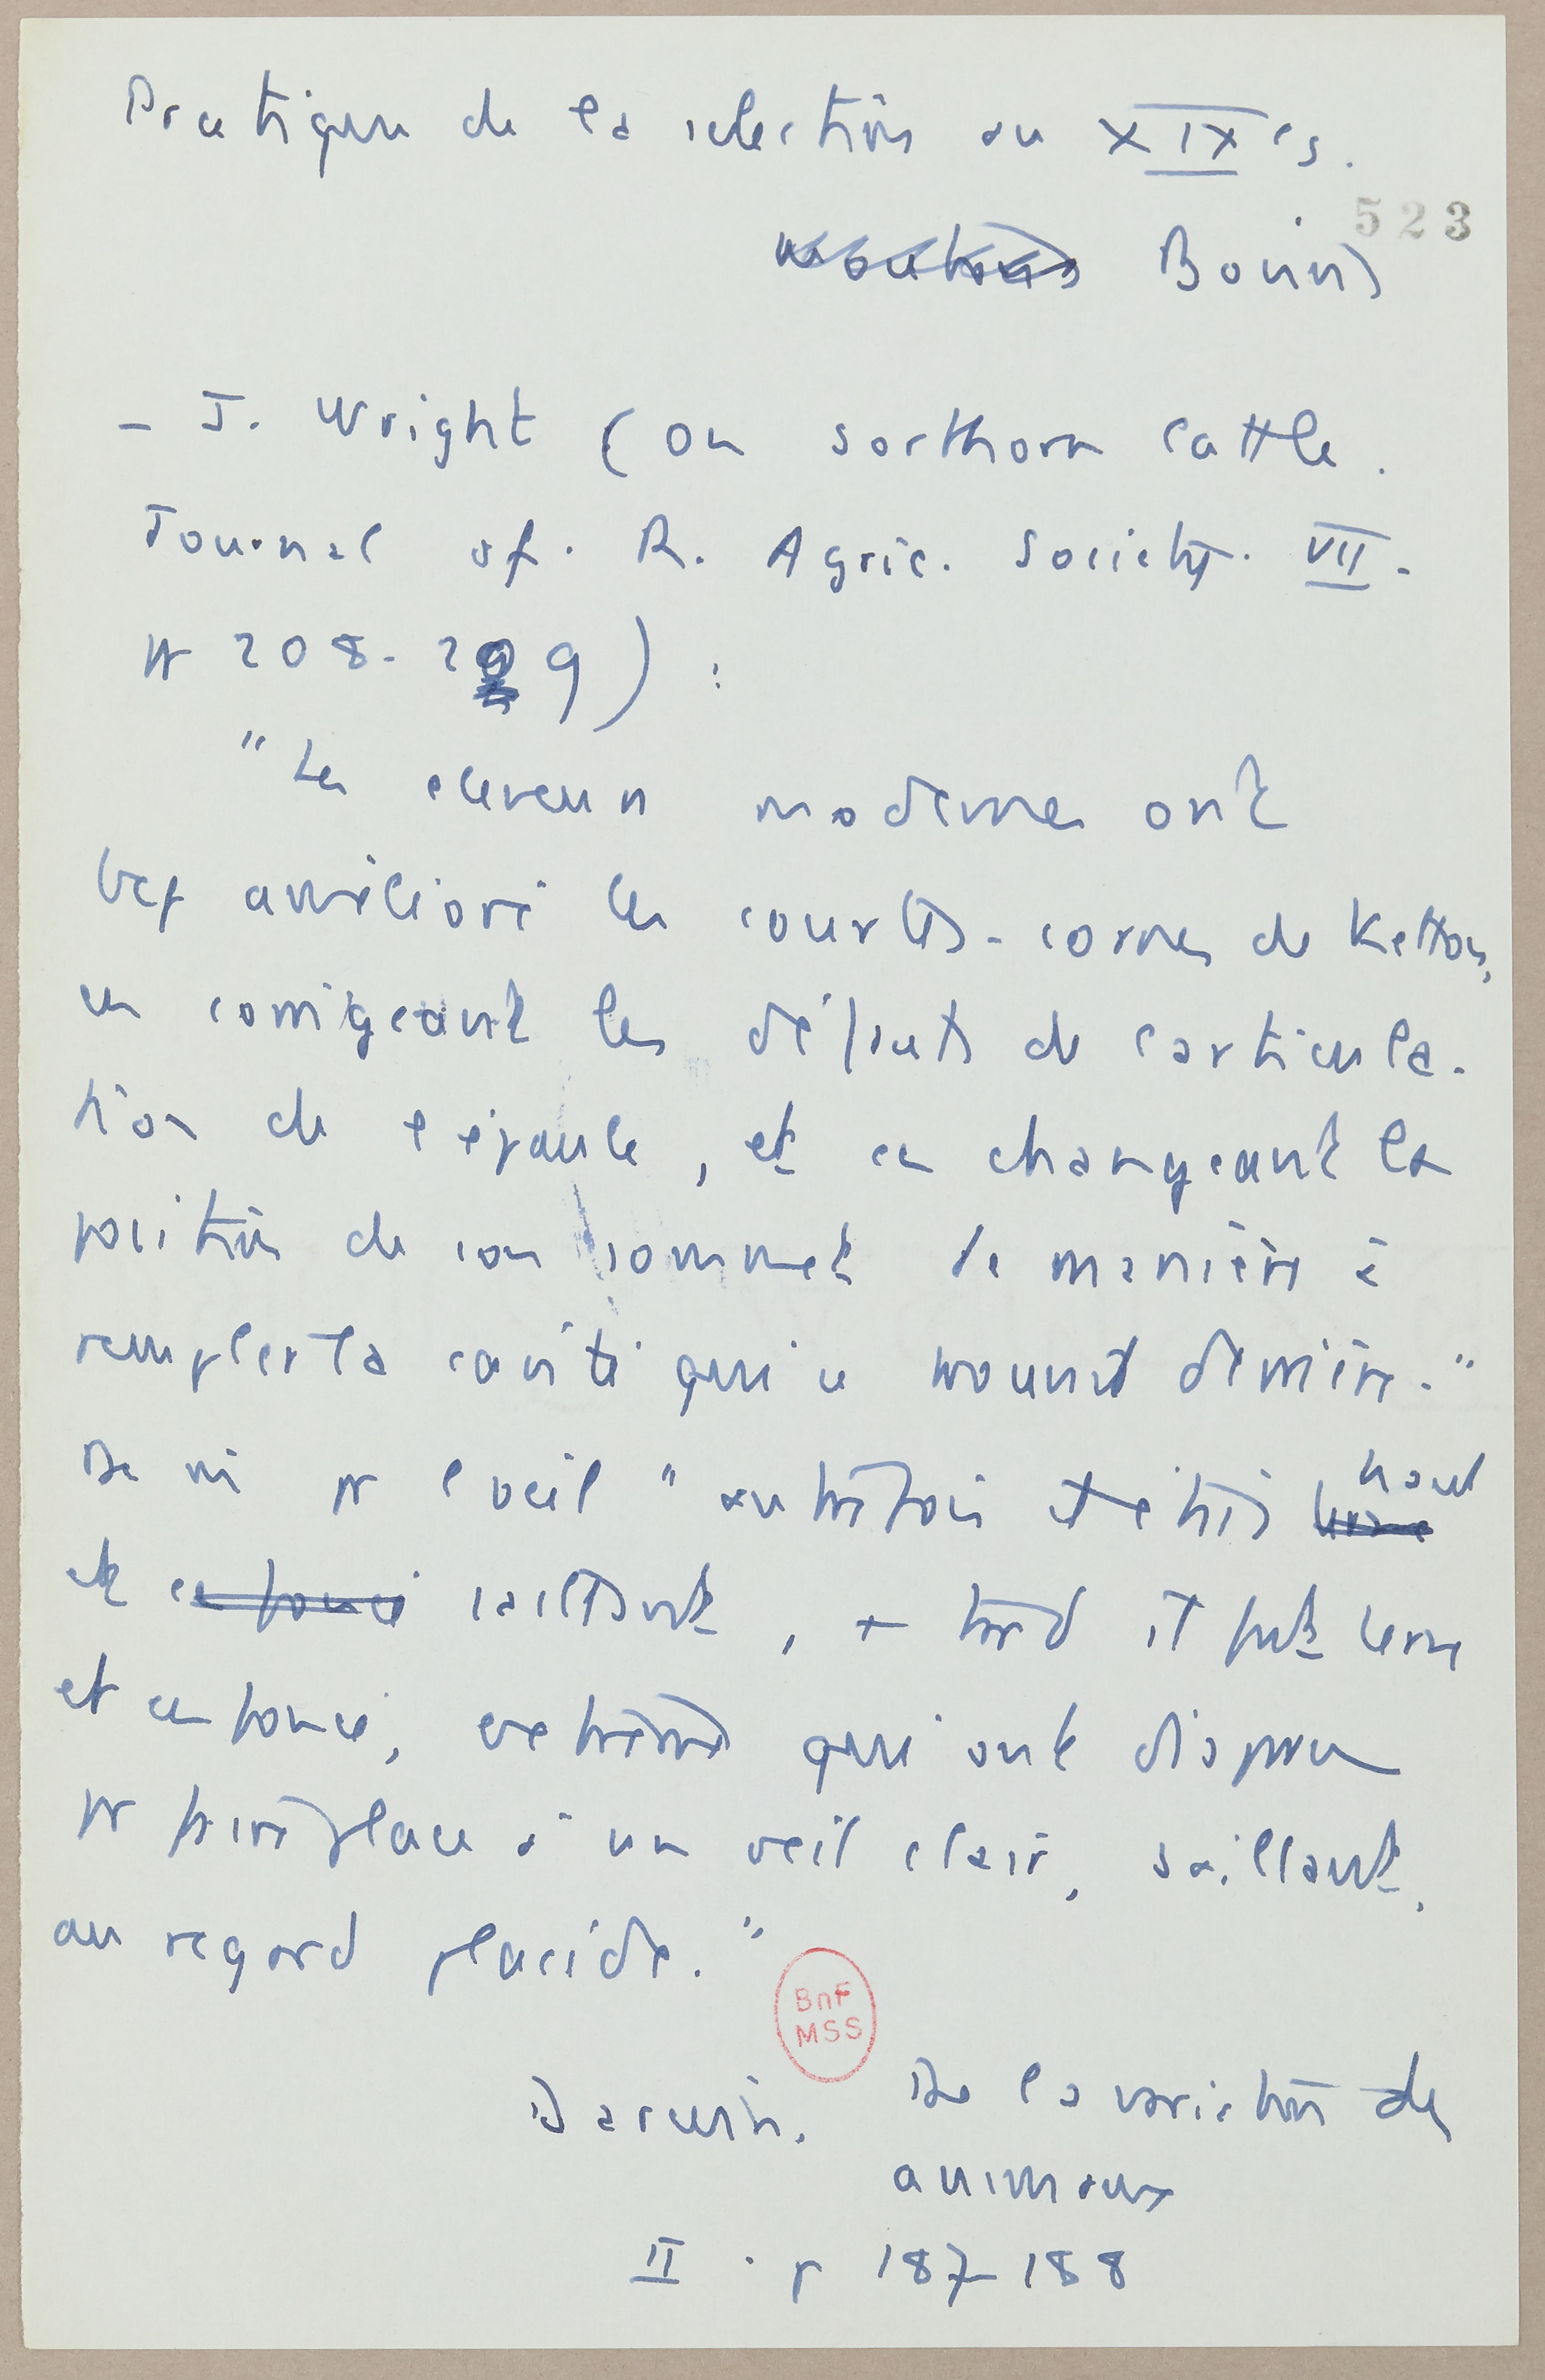 Pratique de la selection au XIXe s.
523
moutons Bovins
- J. Wright (On sorthorn cattle.
Journal of. R. Agric. Society. VII.
pp 208-209) :
"Les eleveurs modernes ont
bcp amélioré les courtes-cornes de Ketton,
en corrigeant les défauts de l'articula-
tion de l'épaule, et en changeant la
position de son sommet de manière à
remplir la cavité qui se trouvait derrière."
De m pr l'oeil "autrefois était haut
et enfoncé saillant, + tard il fut terne
et enfoncé, extrêmes qui ont disparu
pr faire place à un oeil clair, saillant,
au regard placide."
BnF
MSS
Darwin. De la variation des
animaux
II . p 187-188